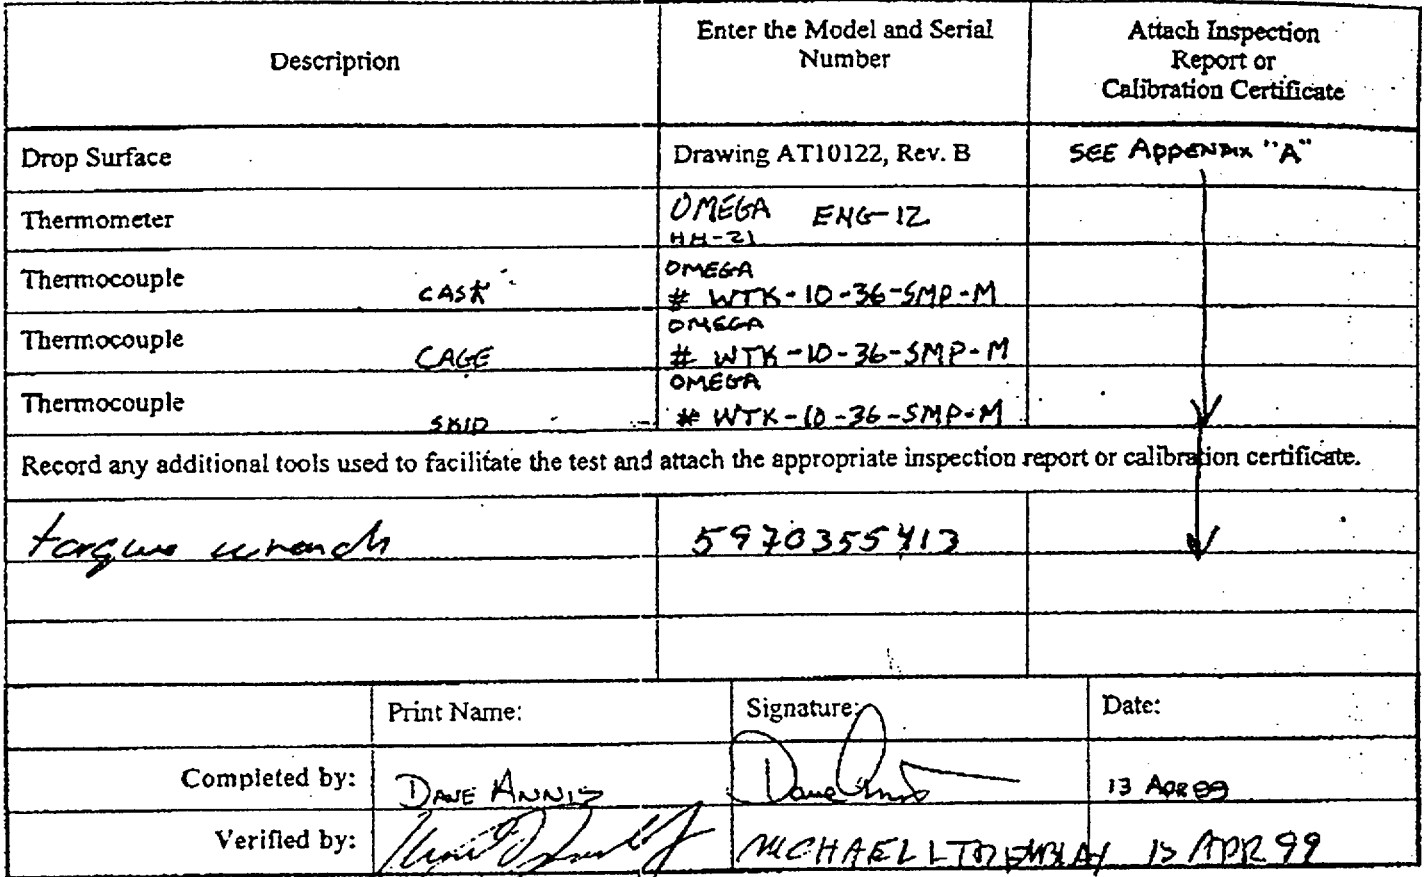 Description
Enter the Model and Serial
Number
Attach Inspection
Report or
Calibration Certificate
Drop Surface
Drawing AT10122, Rev. B
SEE APPENDIX "A"
Thermometer
OMEGA ENG-12
HH-21
Thermocouple
CASK
OMEGA
# WTK-10-36-SMP-M
Thermocouple
CAGE
OMEGA
# WTK-10-36-SMP-M
Thermocouple
SKID
OMEGA
# WTK-10-36-SMP-M
Record any additional tools used to facilitate the test and attach the appropriate inspection report or calibration certificate.
torque wrench
5970355413
Print Name:
Signature:
Date:
Completed by:
DAVE ANNIS
13 APR 99
Verified by:
MICHAEL L TREMBLAY
APR 99